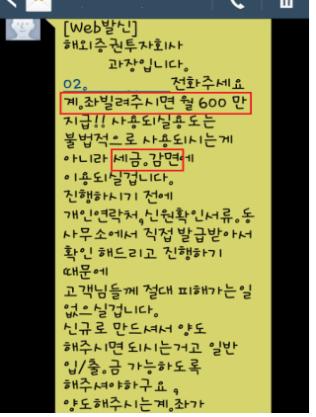 [Web발신]
해외증권투자회사
과장입니다.
02. 전화주세요
계.좌빌려주시면 월 600 만
지급!! 사용도실용도는
불법적으로 사용되시는게
아니라 세금.감면에
이용되실겁니다.
진행하시기 전에
개인연락처,신원확인서류,동
사무소에서 직접 발급받아서
확인 해드리고 진행하기
때문에
고객님들께 절대 피해가는일
없으실겁니다.
신규로 만드셔서 양도
해주시면 되시는거고 일반
입/출.금 가능하도록
해주셔야하구요 ,
양도해주시는계.좌가